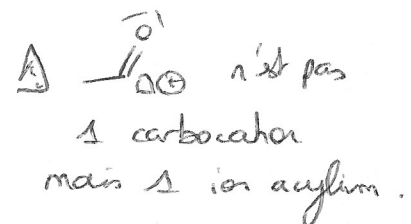 O ⊕ n'est pas
1 carbocation
mais 1 ion acylium.